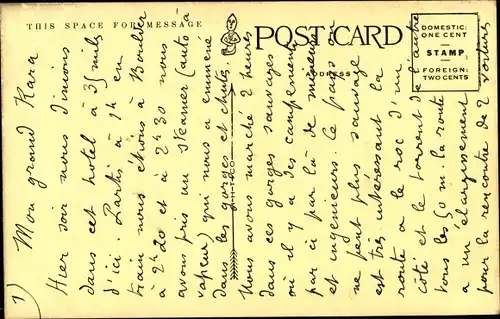 THIS SPACE FOR MESSAGE
POST CARD
DOMESTIC:
ONE CENT
STAMP
FOREIGN:
TWO CENTS
1)
Mon grand Kara
Hier soir nous dinions
dans cet hotel à 35 mils
d'ici. Partis à 1h en
train nous étions à Boulder
à 2h20 et à 2h30 nous
avons pris un steamer (auto à
vapeur) qui nous a emmené
dans les gorges et chutes.
Nous avons marché 2 heures
dans ces gorges sauvages
où il y a des campements
par ci par là de mineurs
et ingénieurs. Le pays on
ne peut plus sauvage
est très intéressant la
route a le roc d'un
côté et le torrent de l'autre
Tous les 50 m. la route
a un élargissement
pour la rencontre de 2 voitures